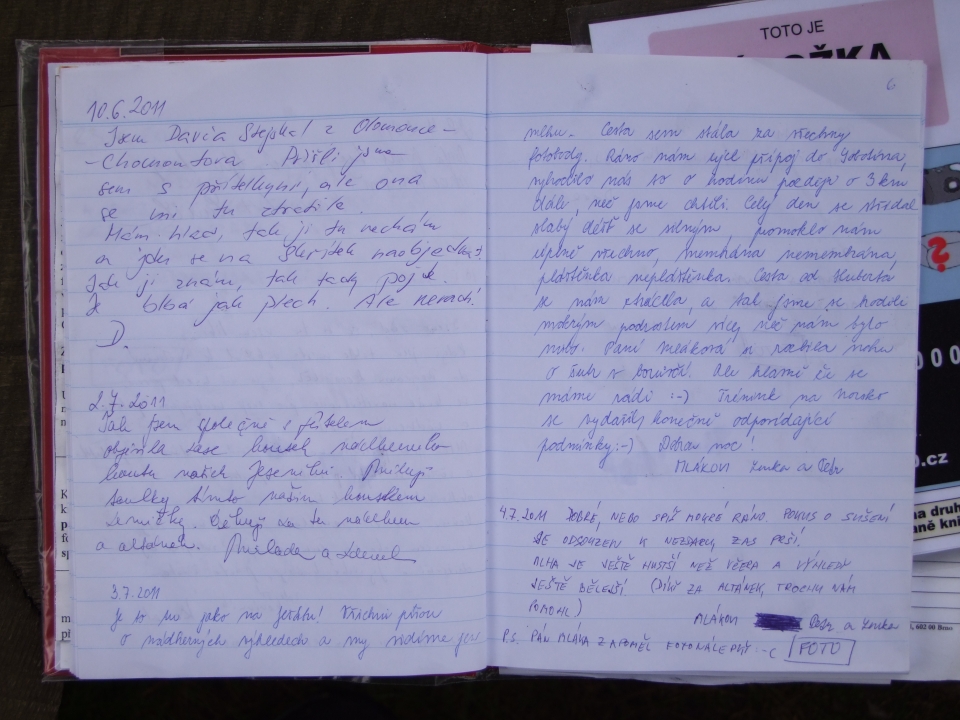 10.6.2011
Jsem David Stejskal z Olomouce –
– Chomoutova. Přišli jsme
sem s přítelkyní, ale ona
se mi tu ztratila.
Mám hlad, tak ji tu nechám
a jdu se na Skřítek naobjedvat.
Jak ji znám, tak tady
Je blbá jak plech. Ale nevadí!
D.
2.7.2011
Tak jsem společně s přítelem
objevila zase kousek nádherného
koutu našich Jeseníků.
toulky tímto naším kouskem
zemičky. Děkuji za tu nádheru
a altánek. a Zdeněk
3.7.2011
Je to tu jako na Ještědu! Všichni píšou
o nádherných výhledech a my vidíme jen
6
mlhu. Cesta sem stála za všechny
Ráno nám ujel přípoj do Sobotína,
vyhodilo nás to o hodinu později o 3 km
dále, než jsme chtěli. Celý den se střídal
slabý déšť se silným, promoklo nám
úplně všechno, membrána nemembrána,
pláštěnka nepláštěnka. Cesta od
se nám ztrácela, a tak jsme se brodili
mokrým podrostem více, než nám bylo
milo. Paní Mláková si rozbila nohu
o v borůvčí. Ale hlavně že se
máme rádi :-) Trénink na Norsko
se vydařil, konečně odpovídající
podmínky :-) Dobrou noc!
MLÁKOVI Lenka a Petr
4.7.2011 DOBRÉ, NEBO SPÍŠ MOKRÉ RÁNO. POKUS O SUŠENÍ
JE ODSOUZEN K NEZDARU, ZAS PRŠÍ.
MLHA JE JEŠTĚ HUSTŠÍ NEŽ VČERA A VÝHLEDY
JEŠTĚ BĚLEJŠÍ (DÍKY ZA ALTÁNEK, TROCHU NÁM
POMOHL)
MLÁKOVI Petr a Lenka
P.S. PAN MLÁKA ZAPOMĚL FOTONÁLEPKY :-C FOTO
TOTO JE
?
000
.cz
na druh
aně kni
, 602 00 Brno